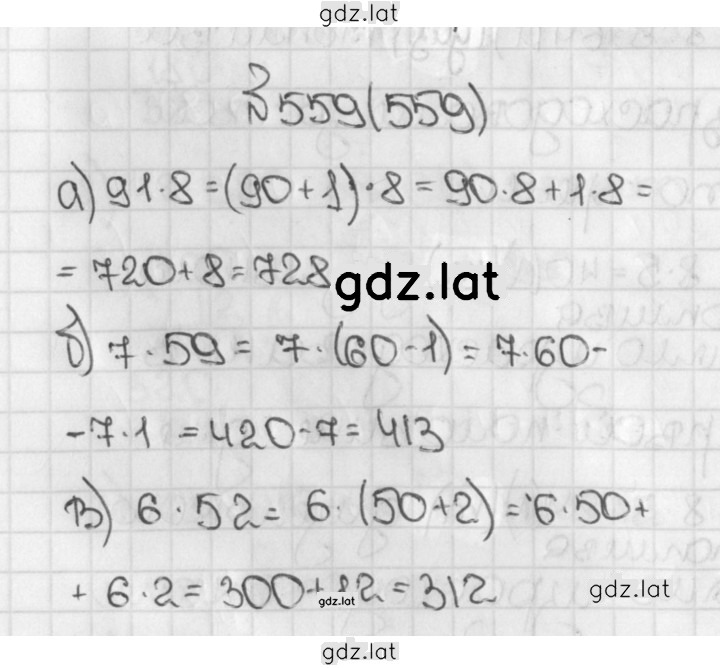 gdz.lat
№ 559(559)
а) 91·8=(90+1)·8=90·8+1·8=
=720+8=728
gdz.lat
б) 7·59=7·(60-1)=7·60-
-7·1=420-7=413
в) 6·52=6·(50+2)=6·50+
+6·2=300+12=312
gdz.lat
gdz.lat
gdz.lat